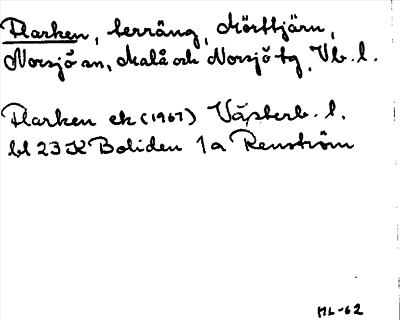 Flarken, terräng, Mörttjärn,
Norsjö sn, Malå och Norsjö tg, Vb. l.
Flarken ek (1967) Västerb. l.
bl 23 K Boliden 1a Renström
ML-62